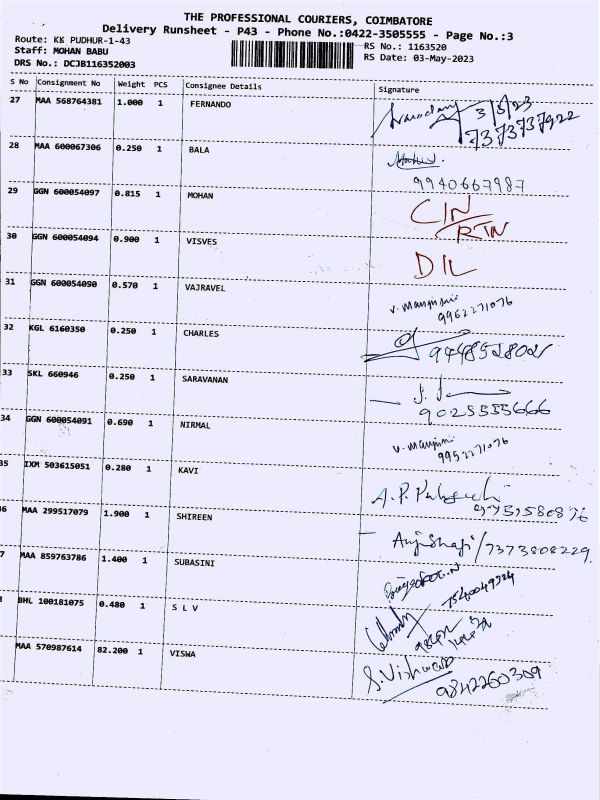 THE PROFESSIONAL COURIERS, COIMBATORE
Delivery Runsheet - P43 - Phone No.:0422-3505555 - Page No.:3
Route: KK PUDHUR-1-43
RS No.: 1163520
Staff: MOHAN BABU
RS Date: 03-May-2023
DRS No.: DCJB116352003
S No Consignment No Weight PCS Consignee Details Signature
27 MAA 568764381 1.000 1 FERNANDO 3/5/23
7373737922
28 MAA 600067306 0.250 1 BALA
9940667987
29 GGN 600054097 0.815 1 MOHAN CIN/RTN
30 GGN 600054094 0.900 1 VISVES DIL
31 GGN 600054090 0.570 1 VAJRAVEL
9962271076
32 KGL 6160350 0.250 1 CHARLES
33 SKL 660946 0.250 1 SARAVANAN
9025555666
34 GGN 600054091 0.690 1 NIRMAL
9952271076
35 IXM 503615051 0.280 1 KAVI
6 MAA 299517079 1.900 1 SHIREEN /7373808229
7 MAA 859763786 1.400 1 SUBASINI
BHL 100181075 0.480 1 S L V
MAA 570987614 82.200 1 VISWA S.Vishwa
9842260309